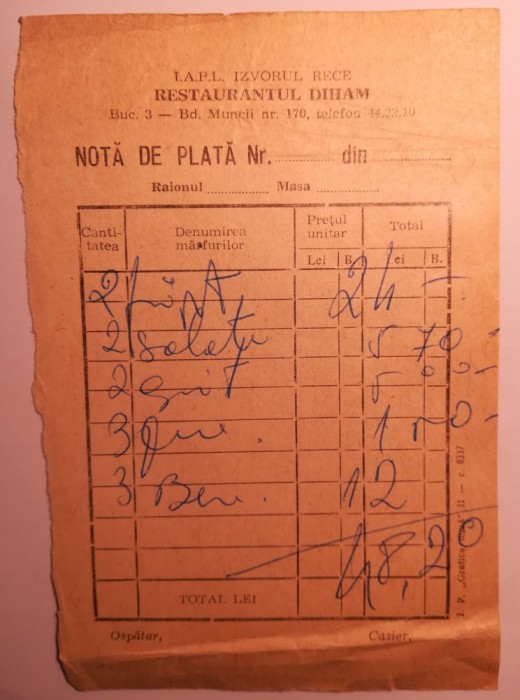 I.A.P.L. IZVORUL RECE
RESTAURANTUL DIHAM
Buc. 3 — Bd. Muncii nr. 170, telefon 44.22.10
NOTĂ DE PLATĂ Nr. din
Raionul Masa
Canti-tatea Denumirea mărfurilor Prețul unitar Total
Lei B. Lei B.
2 24 —
2 Salate 5 70 -
2 5 00 -
3 1 50 -
3 Bere. 12
48,20
TOTAL LEI
Ospătar, Casier,
I. P. „Grafica nouă" II — c. 6317